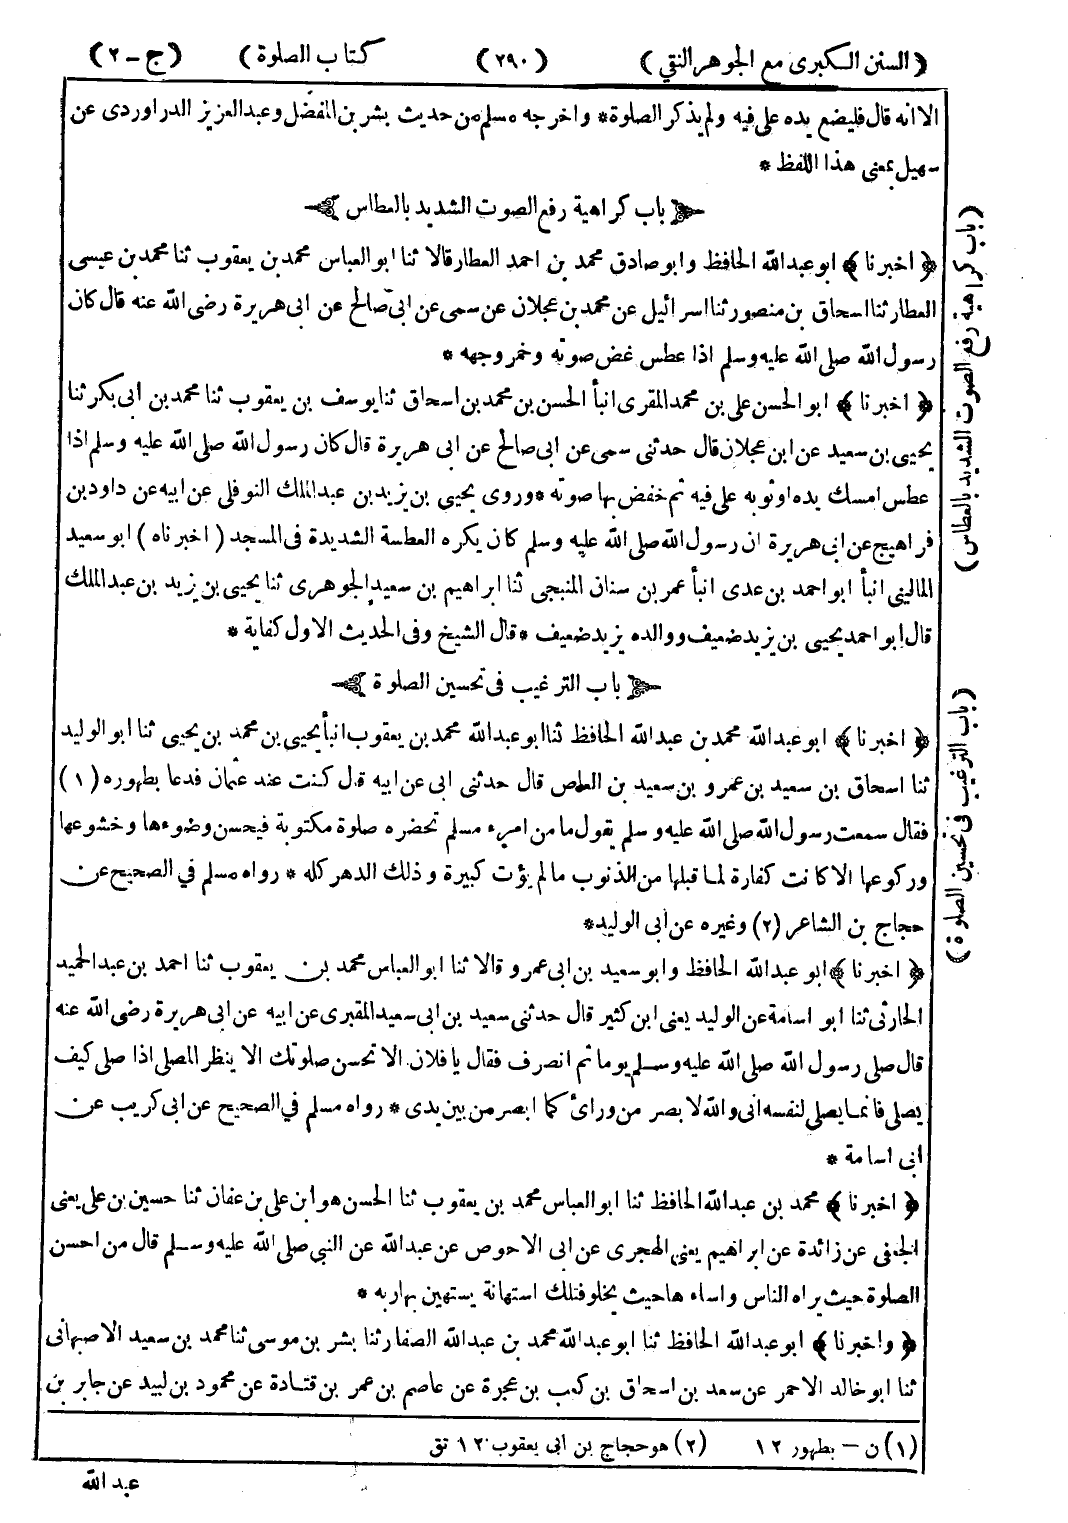 (السنن الكبرى مع الجوهر النقي) (٢٩٠) كتاب الصلوة) (ج-٢)
الا انه قال فليضع يده على فيه ولم يذكر الصلوة* واخرجه مسلم من حديث بشر بن المفضل وعبد العزيز الدراوردى عن
سهيل بمعنى هذا اللفظ *
باب كراهية رفع الصوت الشديد بالعطاس
﴿ اخبرنا ﴾ ابو عبد الله الحافظ وابو صادق محمد بن احمد العطار قالا ثنا ابو العباس محمد بن يعقوب ثنا محمد بن عيسى
العطار ثنا اسحاق بن منصور ثنا اسرائيل عن محمد بن عجلان عن سمى عن ابى صالح عن ابى هريرة رضى الله عنه قال كان
رسول الله صلى الله عليه وسلم اذا عطس غض صوته وخمر وجهه *
﴿ اخبرنا ﴾ ابو الحسن على بن محمد المقرى انبأ الحسن بن محمد بن اسحاق ثنا يوسف بن يعقوب ثنا محمد بن ابى بكر ثنا
يحيى بن سعيد عن ابن عجلان قال حدثنى سمى عن ابى صالح عن ابى هريرة قال كان رسول الله صلى الله عليه وسلم اذا
عطس امسك يده او ثوبه على فيه ثم خفض بها صوته * وروى يحيى بن يزيد بن عبد الملك النوفلى عن ابيه عن داود بن
فراهيج عن ابى هريرة ان رسول الله صلى الله عليه وسلم كان يكره العطسة الشديدة فى المسجد ( اخبرناه ) ابو سعيد
المالينى انبأ ابو احمد بن عدى انبأ عمر بن سنان المنبجى ثنا ابراهيم بن سعيد الجوهرى ثنا يحيى بن يزيد بن عبد الملك
قال ابو احمد يحيى بن يزيد ضعيف ووالده يزيد ضعيف * قال الشيخ وفى الحديث الاول كفاية *
باب الترغيب فى تحسين الصلوة
﴿ اخبرنا ﴾ ابو عبد الله محمد بن عبد الله الحافظ ثنا ابو عبد الله محمد بن يعقوب انبأ يحيى بن محمد بن يحيى ثنا ابو الوليد
ثنا اسحاق بن سعيد بن عمرو بن سعيد بن العاص قال حدثنى ابى عن ابيه قال كنت عند عثمان فدعا بطهوره (١)
فقال سمعت رسول الله صلى الله عليه وسلم يقول ما من امرء مسلم تحضره صلوة مكتوبة فيحسن وضوءها وخشوعها
وركوعها الا كانت كفارة لما قبلها من الذنوب ما لم يؤت كبيرة وذلك الدهر كله * رواه مسلم في الصحيح عن
حجاج بن الشاعر (٢) وغيره عن ابى الوليد*
﴿ اخبرنا ﴾ ابو عبد الله الحافظ وابو سعيد بن ابى عمرو قالا ثنا ابو العباس محمد بن يعقوب ثنا احمد بن عبد الحميد
الحارثى ثنا ابو اسامة عن الوليد يعنى ابن كثير قال حدثنى سعيد بن ابى سعيد المقبرى عن ابيه عن ابى هريرة رضى الله عنه
قال صلى رسول الله صلى الله عليه وسلم يوما ثم انصرف فقال يا فلان الا تحسن صلوتك الا ينظر المصلى اذا صلى كيف
يصلى فانما يصلى لنفسه انى والله لابصر من ورائ كما ابصر من بين يدى * رواه مسلم في الصحيح عن ابى كريب عن
ابى اسامة *
﴿ اخبرنا ﴾ محمد بن عبد الله الحافظ ثنا ابو العباس محمد بن يعقوب ثنا الحسن هو ابن على بن عفان ثنا حسين بن على يعنى
الجعفى عن زائدة عن ابراهيم يعنى الهجرى عن ابى الاحوص عن عبد الله عن النبى صلى الله عليه وسلم قال من احسن
الصلوة حيث يراه الناس واساءها حيث يخلو فتلك استهانة يستهين بها ربه *
﴿ واخبرنا ﴾ ابو عبد الله الحافظ ثنا ابو عبد الله محمد بن عبد الله الصفار ثنا بشر بن موسى ثنا محمد بن سعيد الاصبهانى
ثنا ابو خالد الاحمر عن سعد بن اسحاق بن كعب بن عجرة عن عاصم بن عمر بن قتادة عن محمود بن لبيد عن جابر بن
(١) ن - بطهور ١٢ (٢) هو حجاج بن ابى يعقوب ١٢ تق
عبد الله
(باب كراهية رفع الصوت الشديد بالعطاس)
(باب الترغيب فى تحسين الصلوة)